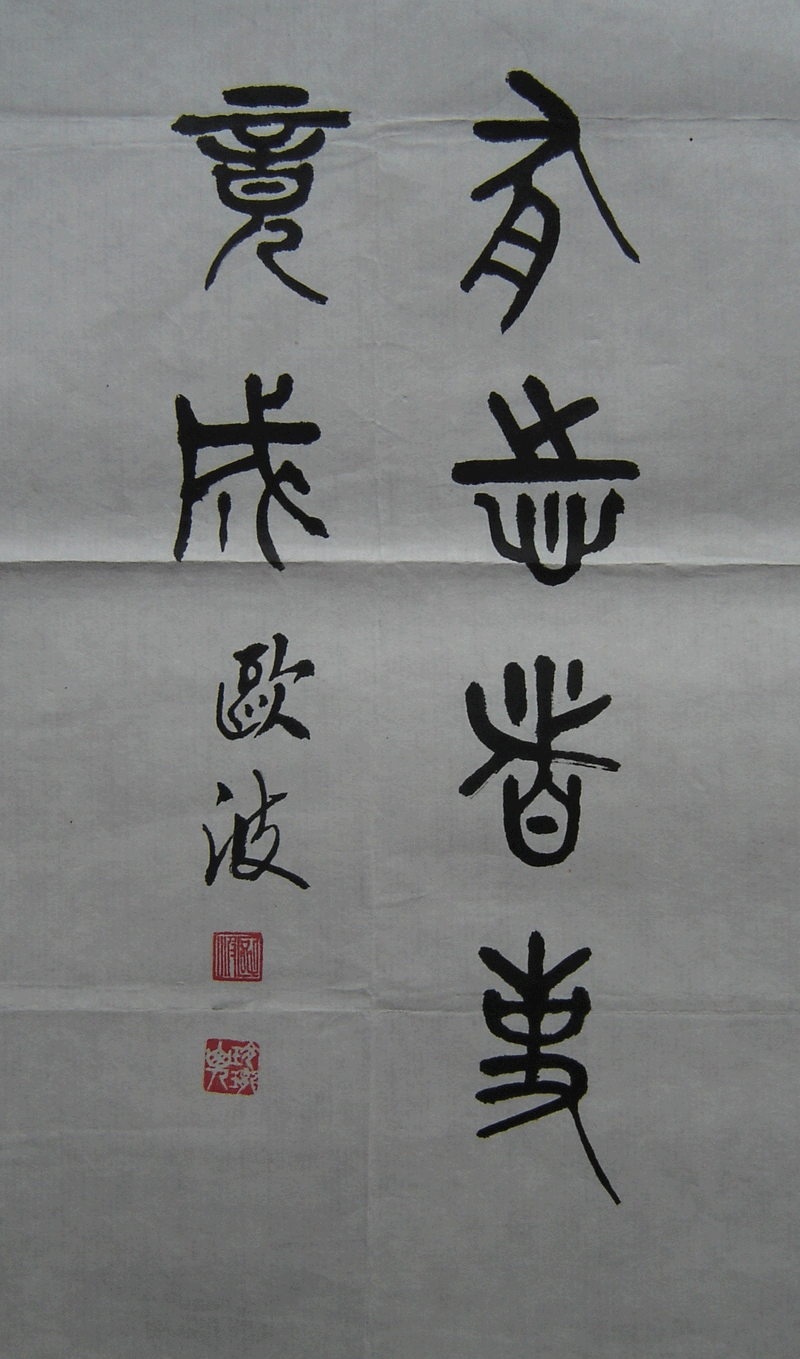 有志者事
竟成
歐波